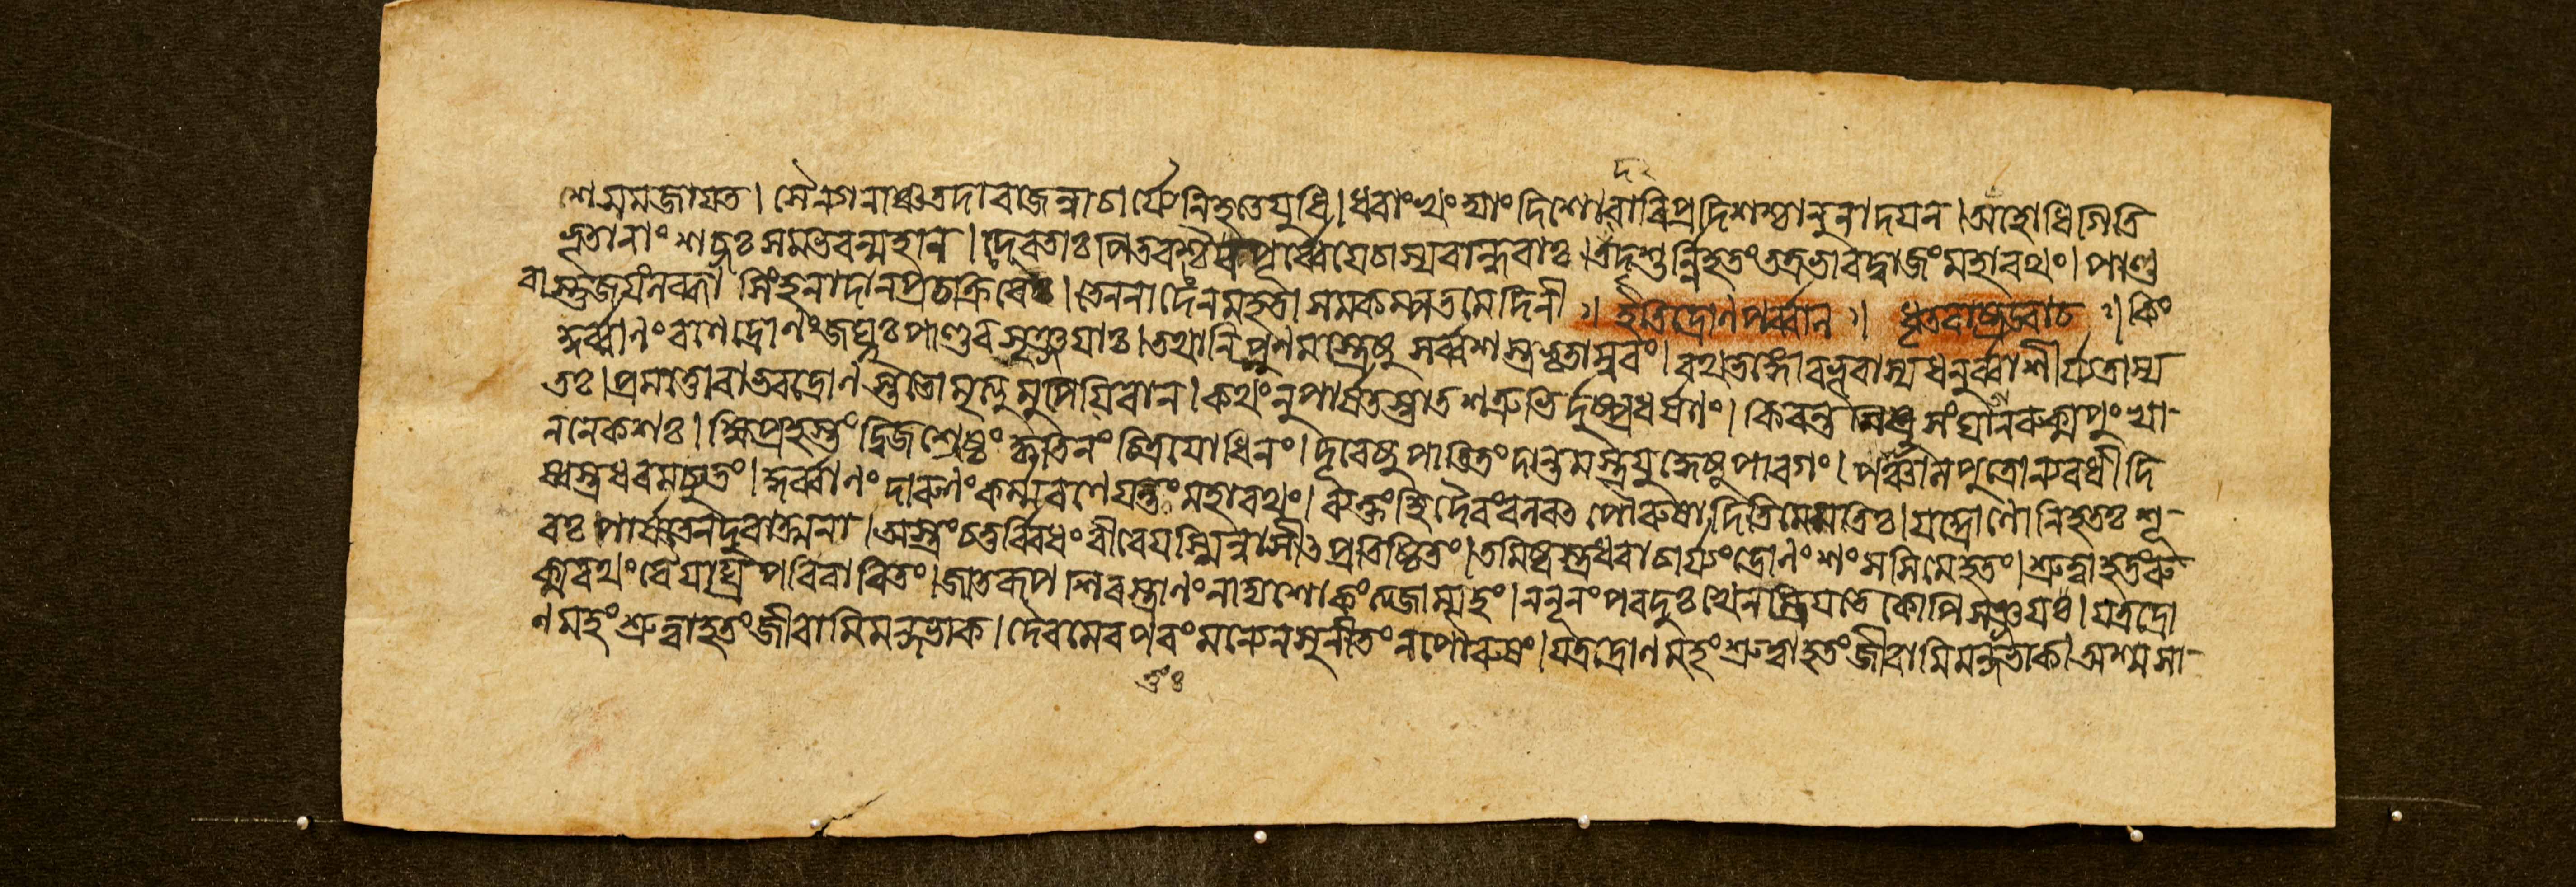 দ২
শে সমজাযত। সৈন্যানাঞ্চ তদা রাজন্নাচার্য্যে নিহতে যুধি। ধরাং খং দ্যাং দিশো বারি প্রদিশশ্চানুনাদযন। অহো ধিগিতি
ভূতানাং শব্দঃ সমভবন্মহান। দেবতাঃ পিতরশ্চৈব পূর্ব্বে যে চাস্য বান্ধবাঃ। তদৃশুর্ন্নিহতং তত্র ভারদ্বাজং মহারথং। পাণ্ড
বাস্তু জযং লব্ধা সিংহনাদান প্রচক্রিরে। তেন নাদেন মহতা সমকম্পত মেদিনী ঃ। ইতি দ্রোণপর্ব্বনি ঃ। ধৃতরাষ্ট্র উবাচ ঃ। কিং
কুর্ব্বানং রণে দ্রোণং জঘ্নুঃ পাণ্ডব সৃঞ্জযাঃ। তথা নিপুণমস্ত্রেষু সর্ব্বশস্ত্রভৃতাম্বরং। রথভঙ্গো বভূবাস্য ধনুর্ব্বাশীর্য্যতাস্য
তঃ। প্রমত্তো বা ভবদ্দ্রোণস্ততো মৃত্যুমুপেযিবান। কথং নু পার্ষতস্তাত শত্রুভির্দুষ্প্রধর্ষণং। কিরন্তমিষুসংঘান রুক্মপুংখা-
ননেকশঃ। ক্ষিপ্রহস্তং দ্বিজশ্রেষ্ঠং কৃতিনং চিত্রযোধিনং। দূরেষুপাতিতং দান্তমস্ত্রযুদ্ধেষু পারগং। পঞ্চালপুত্রো ন্যবধীদি
ব্যাস্ত্রধরমচ্যুতং। কুর্ব্বাণং দারুণং কর্ম্ম রণে যত্তং মহারথং। ব্যক্তং হি দৈবং বলবৎ পৌরুষাদিতি মে মতিঃ। যদ্দ্রোণো নিহতঃ শূ-
রঃ পার্ষতেন দুরাত্মনা। অস্ত্রং চতুর্ব্বিধং বীরে যস্মিন্নাসীৎ প্রতিষ্ঠিতং। তমিষ্বস্ত্রধরাচার্য্যং দ্রোণং শংসসি মে হতং। শ্রুত্বা হতং রু
ক্মরথং বৈযাঘ্রপরিবারিতং। জাতরূপ শিরস্ত্রাণং নাদ্য শোকং ত্যজাম্যহং। ন নূনং পরদুঃখেন ম্রিযতে কোপি সঞ্জয। যত্র দ্রো
ণমহং শ্রুত্বা হতং জীবামি মন্দভাক। দৈবমেব পরং মন্যে ন সুনীতং ন পৌরুষং। যত্র দ্রোণমহং শ্রুত্বা হতং জীবামি মন্দভাক। অশ্মসা-